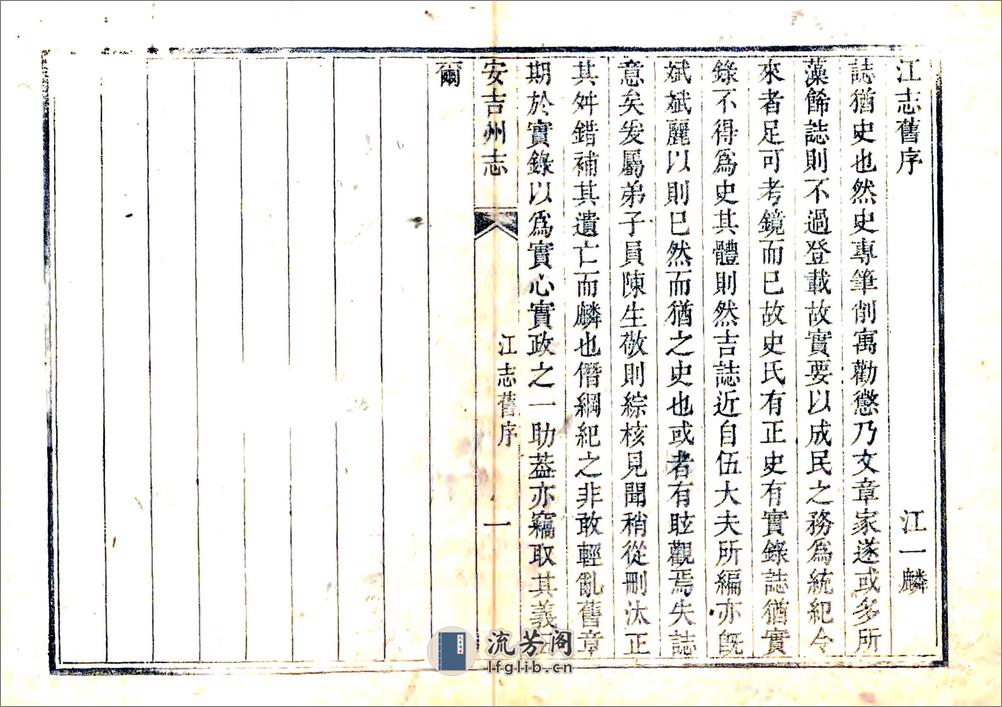 江志舊序 江一麟
誌猶史也然史專筆削寓勸懲乃文章家遂或多所
藻餙誌則不過登載故實要以成民之務為統紀令
來者足可考鏡而已故史氏有正史有實錄誌猶實
錄不得為史其體則然吉誌近自伍大夫所編亦旣
斌斌麗以則已然而猶之史也或者有眩觀焉失誌
意矣爰屬弟子員陳生敬則綜核見聞稍從刪汰正
其舛錯補其遺亡而麟也僭綱紀之非敢輕亂舊章
期於實錄以為實心實政之一助葢亦竊取其義云
安吉州志 江志舊序 一
爾
流芳阁
lfglib.cn